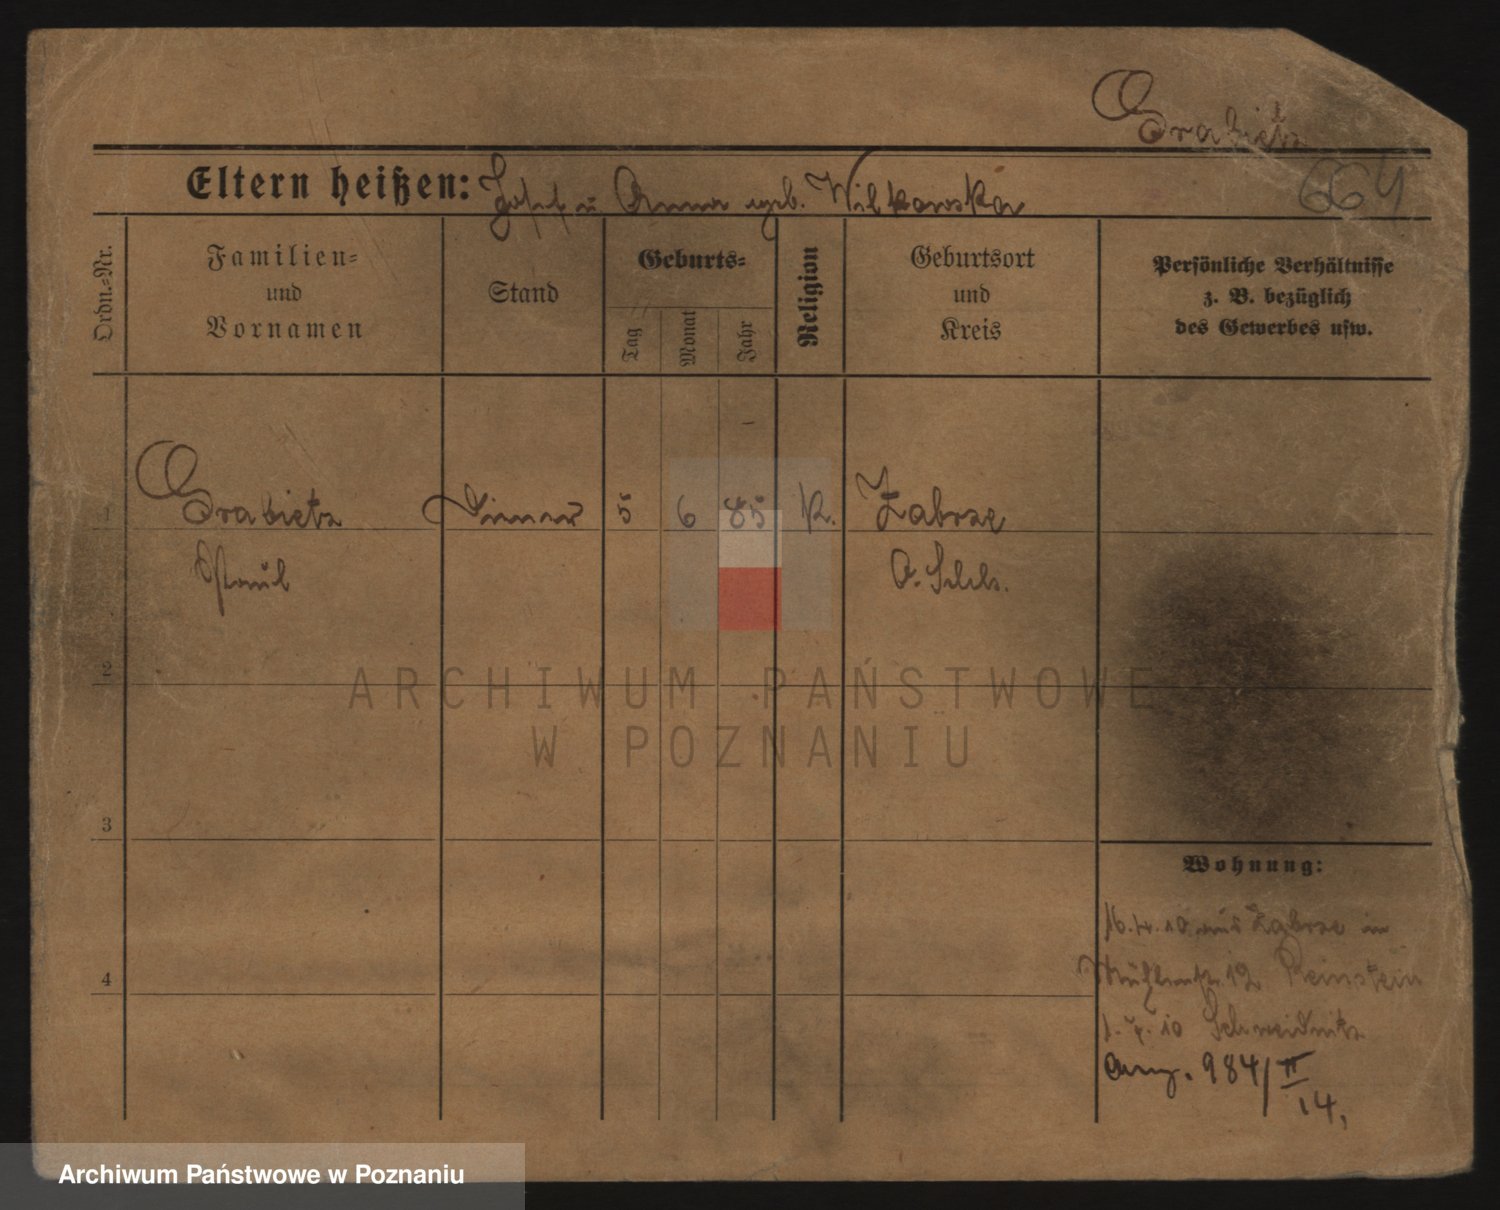 Grabietz
Eltern heißen: Josef u Anna geb. Wilkowska
664
Ordn.-Nr.
Familien-
und
Vornamen
Stand
Geburts-
Tag
Monat
Jahr
Religion
Geburtsort
und
Kreis
Persönliche Verhältnisse
z. B. bezüglich
des Gewerbes usw.
1
Grabietz
Diener
5
6
85
K.
Zabrze
Paul
O. Schls.
2
ARCHIWUM PAŃSTWOWE
W POZNANIU
3
Wohnung:
16.4.10 aus Zabrze in
Mühlenstr. 12 Reinstein
4
1.7.10 Schweidnitz
Ang. 984/II
14,
Archiwum Państwowe w Poznaniu